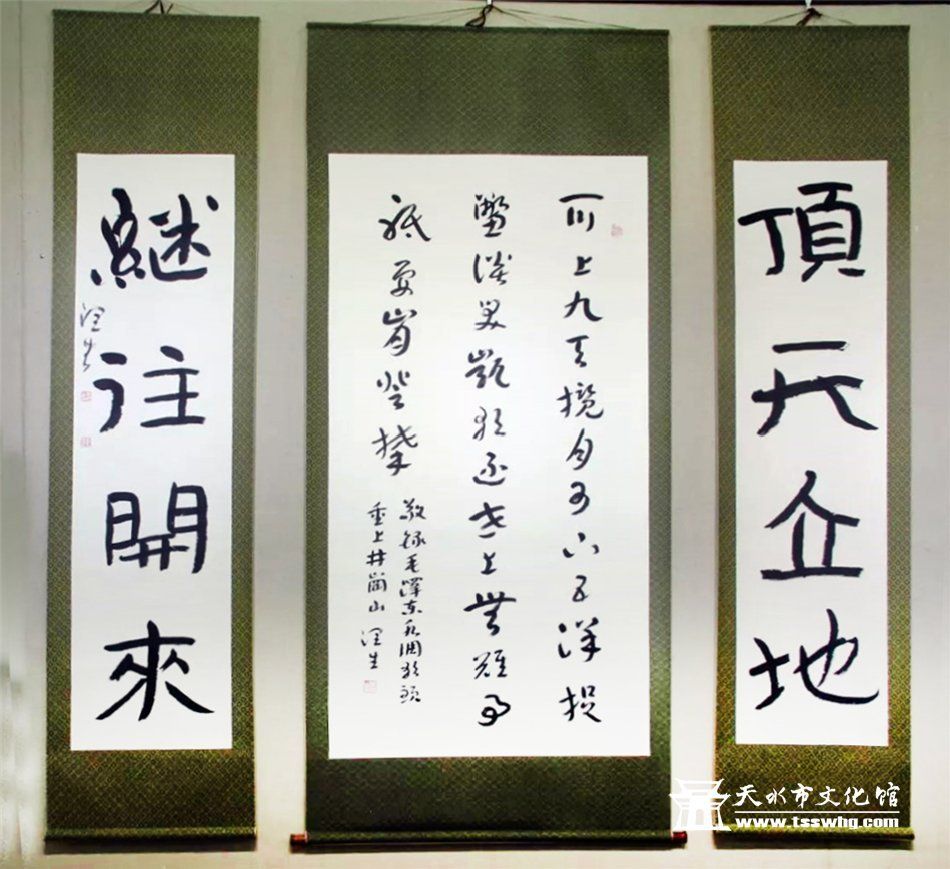 頂天立地
可上九天攬月可下五洋捉
鱉談笑凱歌還世上無難事
祇要肯登攀
敬錄毛澤東水調歌頭
重上井崗山
継往開來
天水市文化馆
www.tsswhg.com